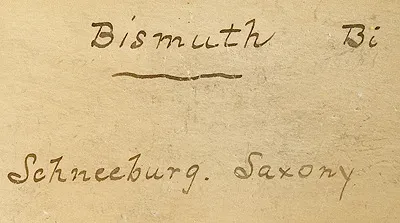 Bismuth Bi
Schneeburg. Saxony